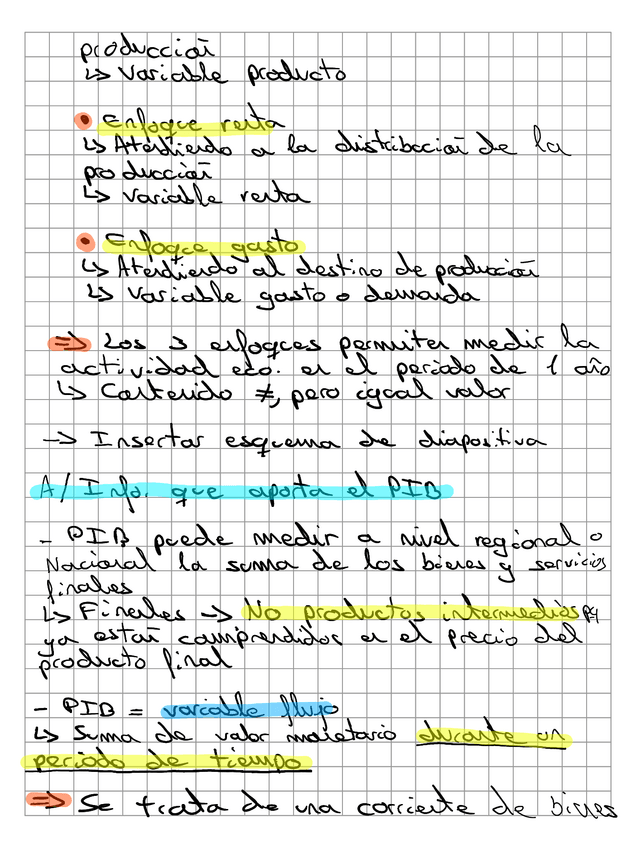 producción
↳ Variable producto
• Enfoque renta
↳ Atendiendo a la distribución de la
producción
↳ Variable renta
• Enfoque gasto
↳ Atendiendo al destino de producción
↳ Variable gasto o demanda
⇒ Los 3 enfoques permiten medir la
actividad eco. en el periodo de 1 año
↳ Contenido ≠, pero igual valor
→ Insertar esquema de diapositiva
A/ Info. que aporta el PIB
- PIB puede medir a nivel regional o
Nacional la suma de los bienes y servicios
finales
↳ Finales → No productos intermedios pq
ya están comprendidos en el precio del
producto final
- PIB = variable flujo
↳ Suma de valor monetario durante un
periodo de tiempo
⇒ Se trata de una corriente de bienes